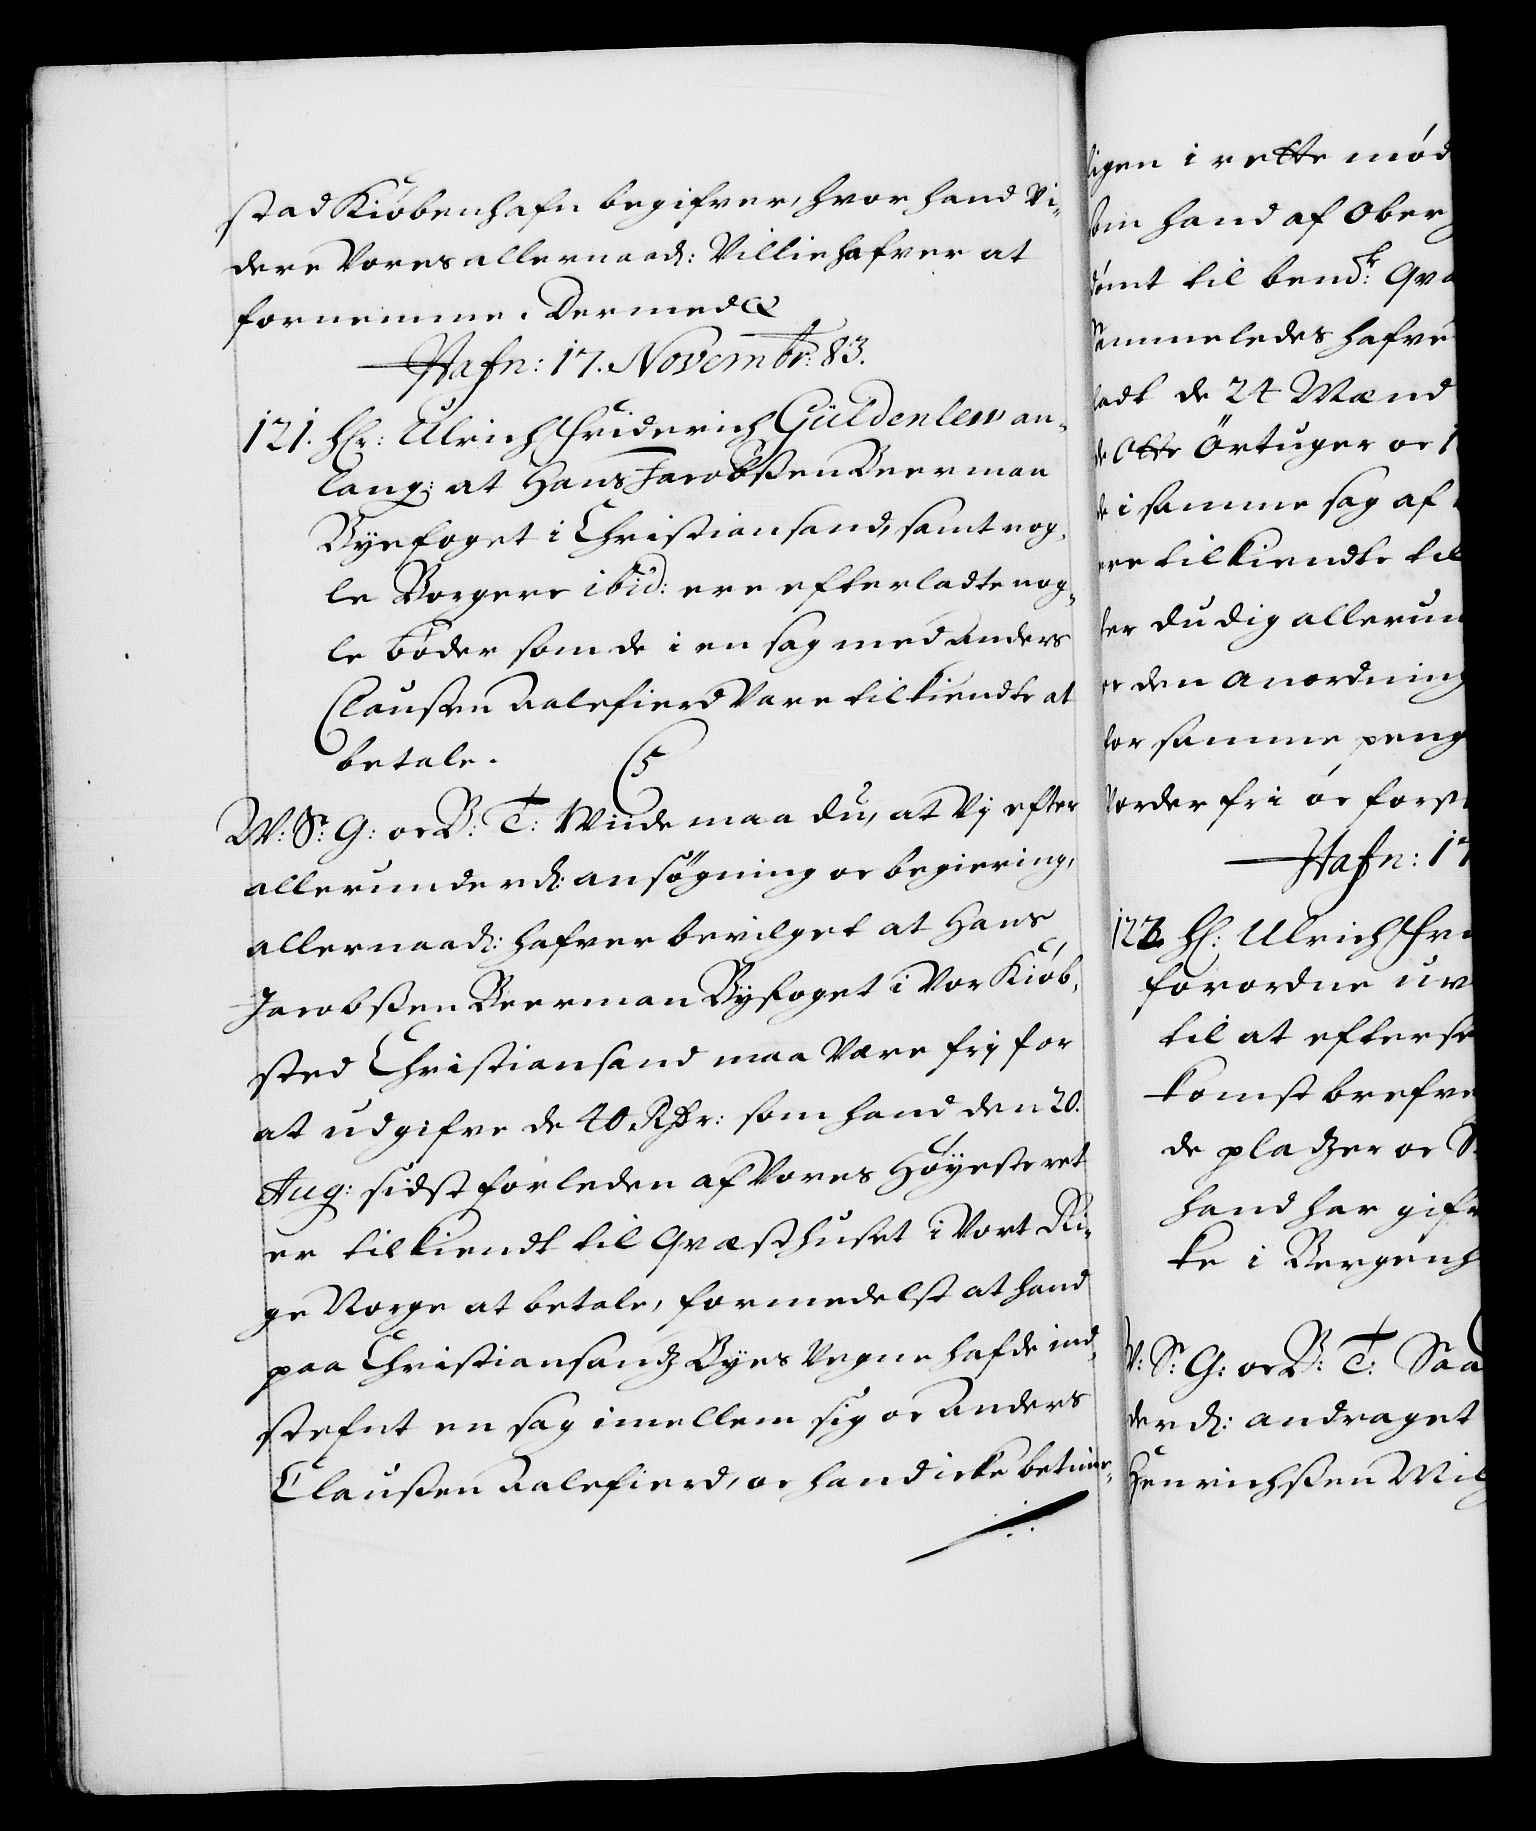 stad Kiøbenhafn begifver, hvor hand Vi-
dere Vores allernaad: Villie hafver at
fornemme. Dermed &
Hafn: 17. Novembr: 83.
121. Hr: Ulrich Friderich Güldenlew an-
lang: at Hans Jacobßen Beerman
Byefoget i Christiansand, samt nog-
le Borgere ibid: ere efterladte nog-
le bøder som de i en sag med Anders
Claußen Aalefierd Vare tilkiendte at
betale.
C5
W: Sr: G: oc B: T: Wiide maa du, at Vj efter
allerunderd: ansøgning oc begiering,
allernaad: hafver bevilget at Hans
Jacobßen Beerman Byfoget i Vor Kiøb-
sted Christiansand maa Være frj for
at udgifve de 40 Rdr: som hand den 20.
Aug: sidst forleden af Vores Høyeste ret
er tilkiendt til Qvæsthuset i Vort Ri-
ge Norge at betale, formedelst at hand
paa Christiansandz Byes Vegne hafde ind-
stefnt en sag imellem sig oc Anders
Claußen Aalefierd, oc hand icke betime-
ligen i rette mød
som hand af Ober
dømt til bend:k Qvæ
Sammeledes hafve
ladt de 24 Mænd
de Otte Örtuger oc 1
de i samme sag af
ere tilkiendte til
ter du dig allerun
er den anordning
for samme peng
Vorder fri oc forsk
Hafn: 17
122. H: Ulrich Fri
forordne uv
til at efterse
komst brefve
de pladzer oc S
hand har gifv
ke i Bergenh
W: Sr: G: oc B: T: Saa
derd: andraget
Henrichßen Mil